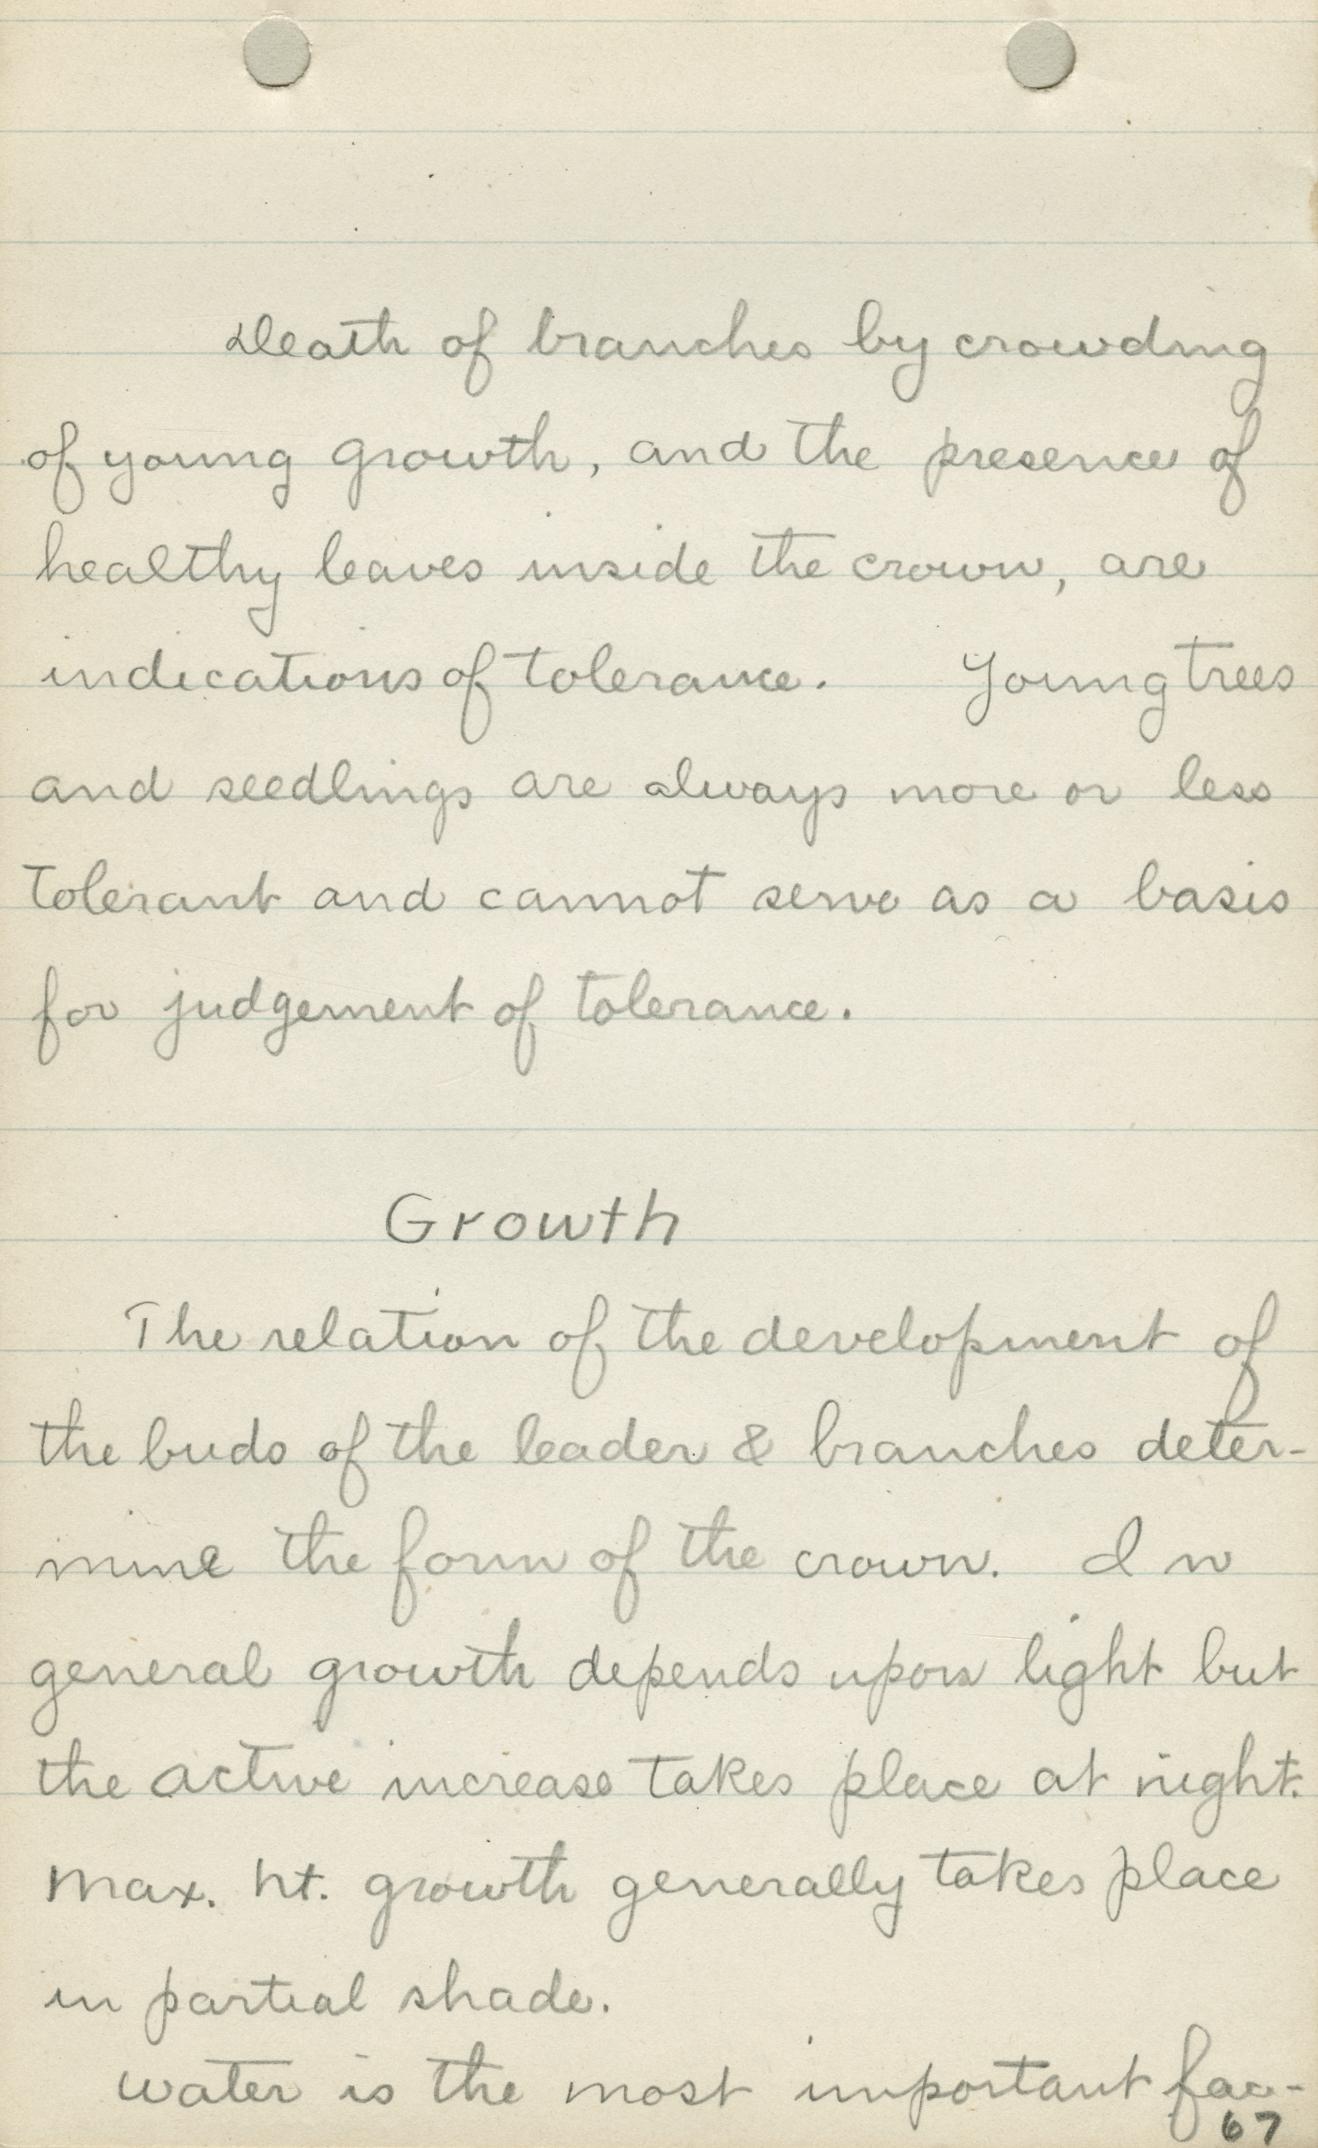 Death of branches by crowding
of young growth, and the presence of
healthy leaves inside the crown, are
indications of tolerance. Young trees
and seedlings are always more or less
tolerant and cannot serve as a basis
for judgement of tolerance.
Growth
The relation of the development of
the buds of the leader & branches deter-
mine the form of the crown. In
general growth depends upon light but
the active increase takes place at night.
Max. ht. growth generally takes place
in partial shade.
Water is the most important fac-
67